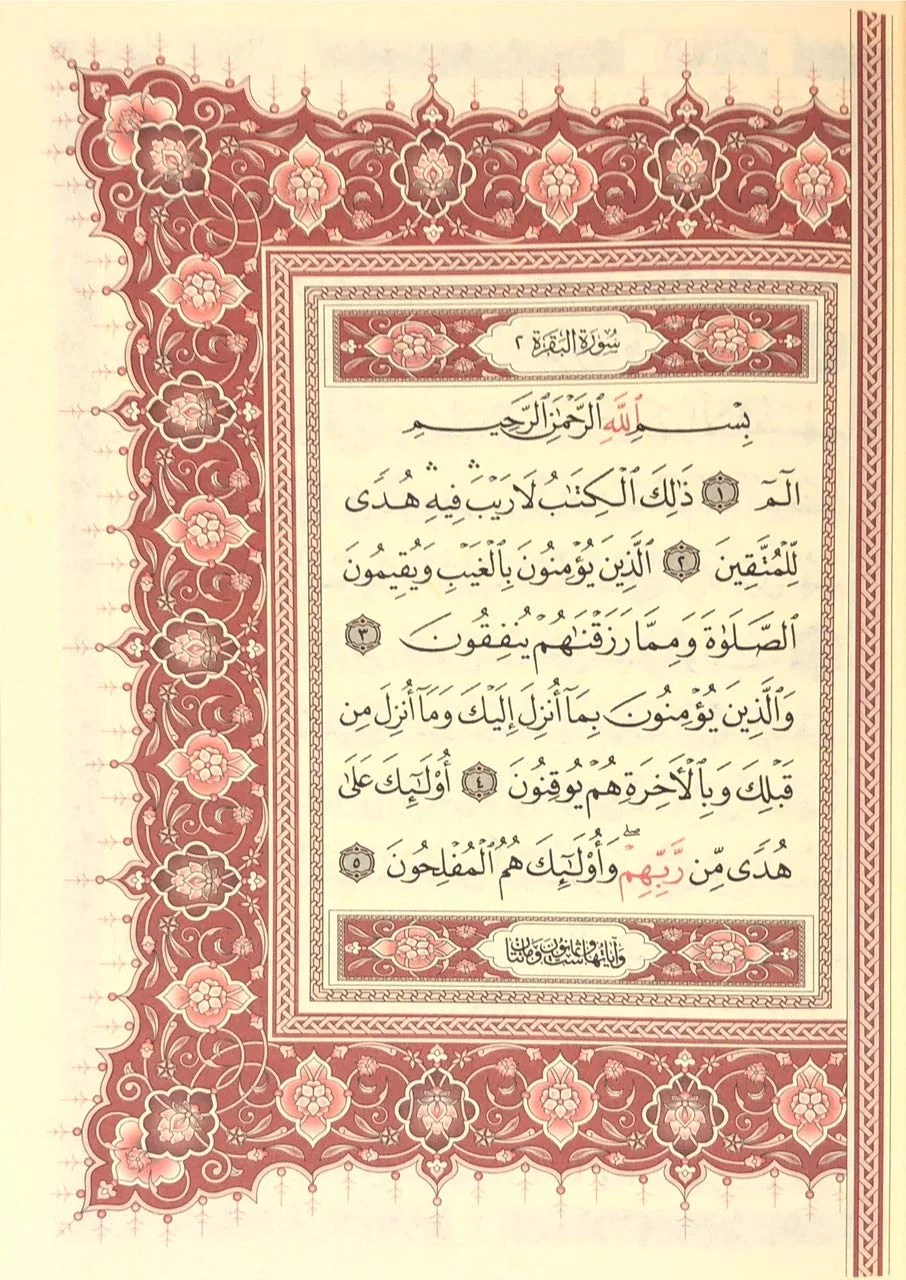 سُورَةُ البَقَرَة ٢
بِسْمِ ٱللَّهِ ٱلرَّحْمَٰنِ ٱلرَّحِيمِ
الٓمٓ ١ ذَٰلِكَ ٱلْكِتَٰبُ لَا رَيْبَ ۛ فِيهِ ۛ هُدًى
لِّلْمُتَّقِينَ ٢ ٱلَّذِينَ يُؤْمِنُونَ بِٱلْغَيْبِ وَيُقِيمُونَ
ٱلصَّلَوٰةَ وَمِمَّا رَزَقْنَٰهُمْ يُنفِقُونَ ٣
وَٱلَّذِينَ يُؤْمِنُونَ بِمَآ أُنزِلَ إِلَيْكَ وَمَآ أُنزِلَ مِن
قَبْلِكَ وَبِٱلْأَخِرَةِ هُمْ يُوقِنُونَ ٤ أُوْلَٰٓئِكَ عَلَىٰ
هُدًى مِّن رَّبِّهِمْ ۖ وَأُوْلَٰٓئِكَ هُمُ ٱلْمُفْلِحُونَ ٥
وَآيَاتُهَا سِتٌّ وَثَمَانُونَ وَمِائَتَانِ